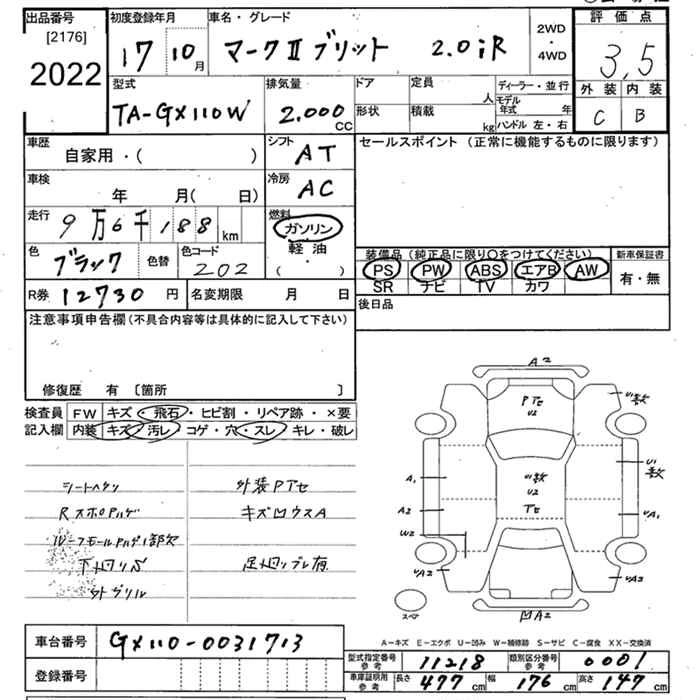 出品番号 初度登録年月 車名・グレード 評価点
[2176]
2022 17 10月 マークⅡブリット 2.0iR 2WD・4WD 3.5
型式 排気量 ドア 定員 人 ディーラー・並行 外装 内装
TA-GX110W 2.000CC 形状 積載 kg モデル年式 年 ハンドル 左・右 C B
車歴 シフト セールスポイント (正常に機能するものに限ります)
自家用・( ) AT
車検 冷房
年 月(日) AC
走行 燃料
9万6千188km ガソリン
色 色替 色コード 軽油 装備品 (純正品に限り○をつけてください) 新車保証書
ブラック 202 ( ) PS PW ABS エアB AW 有・無
SR ナビ TV カワ
R券 12730円 名変期限 月 日 後日品
注意事項申告欄(不具合内容等は具体的に記入して下さい)
修復歴 有 〔箇所 〕
検査員 FW キズ・飛石・ヒビ割・リペア跡・×要
記入欄 内装 キズ・汚レ・コゲ・穴・スレ・キレ・破レ
外装PTセ
キズ凹ウスA
A2
PTセ
U2
U1数
U1数
A1
U1数
U2
A2
Tセ
UA1
W2
UA2
UA2
スペア
凹A2
A-キズ E-エクボ U-凹み W-補修跡 S-サビ C-腐食 XX-交換済
車台番号 GX110-0031713
型式指定番号 参考 11218 類別区分番号 参考 0001
登録番号 車庫証明用 参考 長さ 477cm 幅 176cm 高さ 147cm